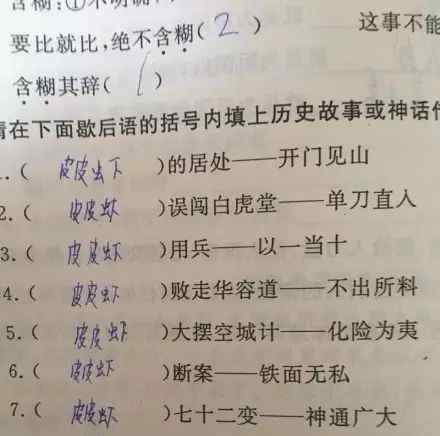 含糊:①不明确
要比就比,绝不含糊( 2 ) 这事不能
含糊其辞( 1 )
请在下面歇后语的括号内填上历史故事或神话
1.( 皮皮虾 )的居处——开门见山
2.( 皮皮虾 )误闯白虎堂——单刀直人
3.( 皮皮虾 )用兵——以一当十
4.( 皮皮虾 )败走华容道——不出所料
5.( 皮皮虾 )大摆空城计——化险为夷
6.( 皮皮虾 )断案——铁面无私
7.( 皮皮虾 )七十二变——神通广大